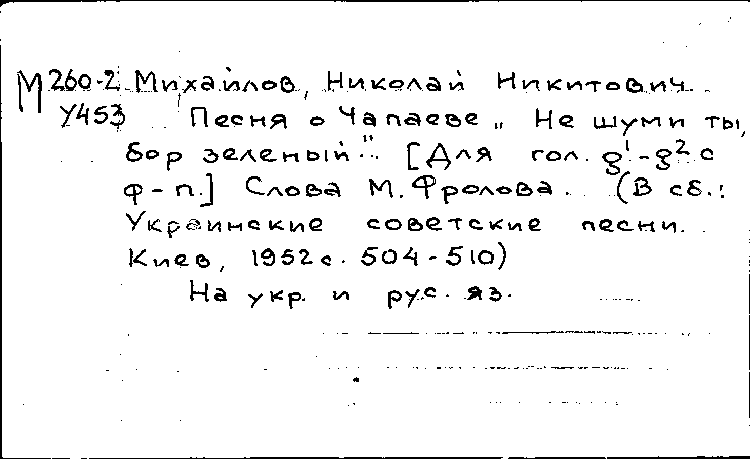 М 260-2 Михайлов, Николай Никитович.
У453 Песня о Чапаеве „ Не шуми ты,
бор зеленый". [Для гол. g¹-g² с
ф-п.] Слова М. Фролова. (В сб.:
Украинские советские песни.
Киев, 1952 с. 504-510)
На укр. и рус. яз.